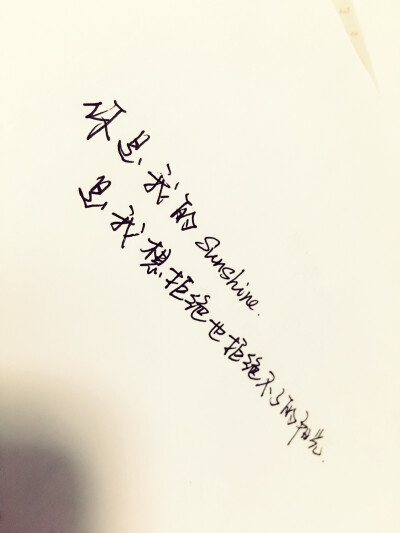 你是我的 Sunshine.
是我想拒绝也拒绝不了的阳光.